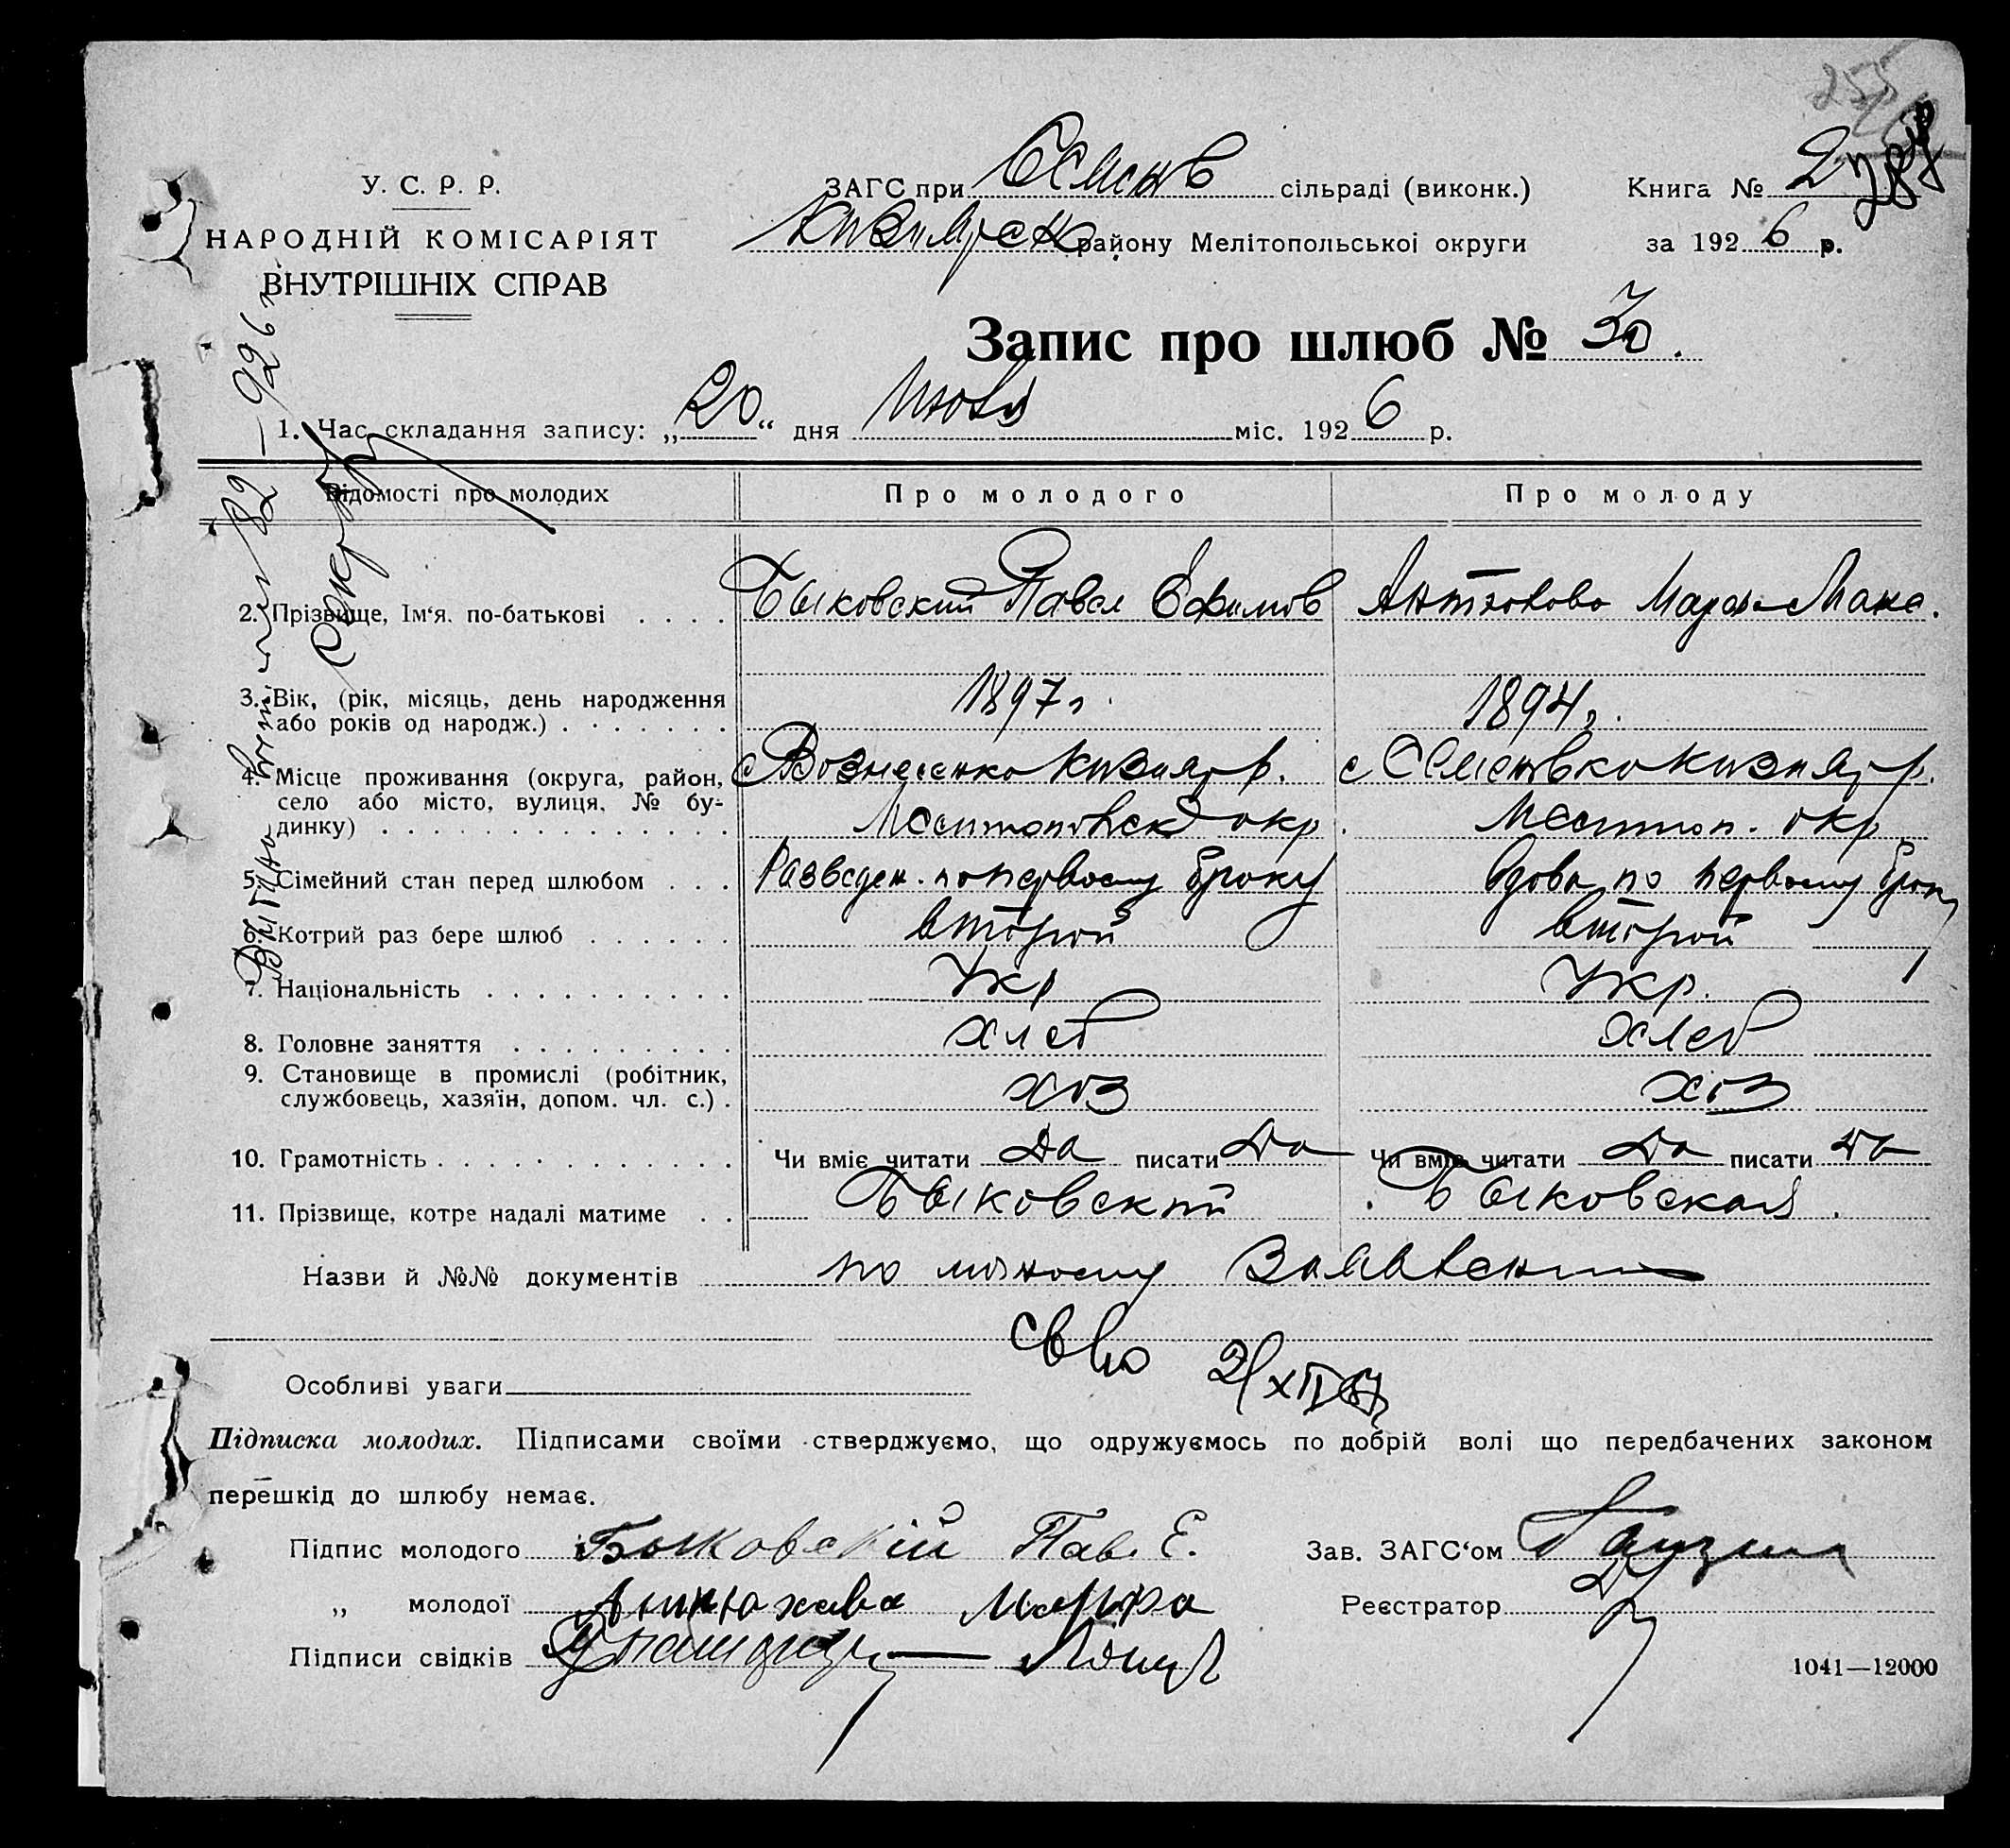 У. С. Р. Р.
НАРОДНІЙ КОМІСАРІЯТ
ВНУТРІШНІХ СПРАВ
255
ЗАГС при Семенов сільраді (виконк.)
Кизиярск району Мелітопольської округи
Книга № 2
за 1926 р.
Запис про шлюб № 30.
1. Час складання запису: „20“ дня міс. 1926 р.
Відомості про молодих
Про молодого
Про молоду
2. Прізвище, Ім‘я. по-батькові . . . . Быковский Павел Ефимов Антюхова Марфа Макс.
3. Вік, (рік, місяць, день народження
або років од народж.) . . . . . . . 1897 г. 1894 г.
4. Місце проживання (округа, район, с Вознесенка Кизияр р. с Семеновка Кизияр р.
село або місто, вулиця, № бу-
динку) . . . . . . . . . . . . . . Мелитопольск окр. Мелитоп. окр
5. Сімейний стан перед шлюбом . . . Разведен. по первому браку вдова по первому браку
6. Котрий раз бере шлюб . . . . . . второй второй
7. Національність . . . . . . . . . . Укр Укр.
8. Головне заняття . . . . . . . . . хлеб хлеб
9. Становище в промислі (робітник,
службовець, хазяїн, допом. чл. с.) . хоз хоз
10. Грамотність . . . . . . . . . . . . Чи вміє читати да писати да Чи вміє читати да писати да
11. Прізвище, котре надалі матиме . . Быковский Быковская.
Назви й №№ документів по личному
Особливі уваги
Підписка молодих. Підписами своїми стверджуємо, що одружуємось по добрій волі що передбачених законом
перешкід до шлюбу немає.
Підпис молодого Быковскій Пав. Е.
Зав. ЗАГС‘ом
„ молодої Антюхава Марфа
Реєстратор
Підписи свідків
1041—12000